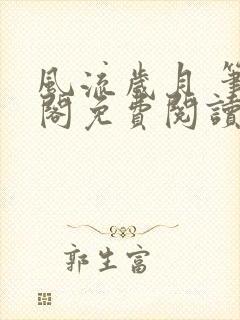 風流歲月 筆
閣免費閱讀
郭生富